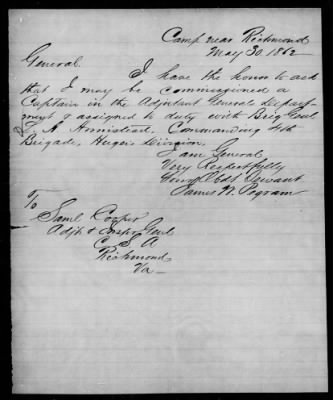 Camp near Richmond
May 30, 1862
General.
I have the honor to ask
that I may be commissioned a
Captain in the Adjutant Generals Depart-
ment & assigned to duty with Brig Genl
L. A. Armistead. Commanding 4th
Brigade, Hugers Division.
I am General,
Very Respectfully
Your Obdt Servant
James W. Pegram
To
Saml Cooper
Adjt & Inspr Genl
C. S. A
Richmond
Va